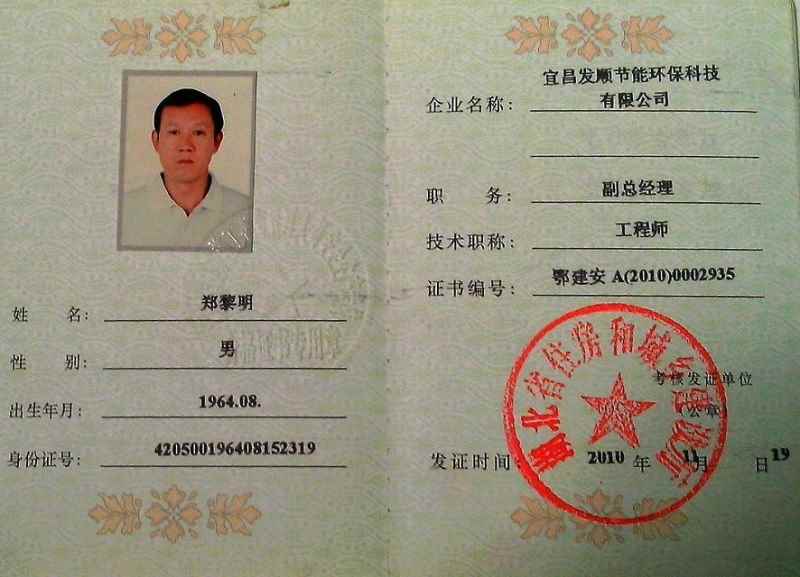 姓 名: 郑黎明
性 别: 男
出生年月: 1964.08.
身份证号: 420500196408152319
企业名称: 宜昌发顺节能环保科技
有限公司
职 务: 副总经理
技术职称: 工程师
证书编号: 鄂建安 A(2010)0002935
湖北省住房和城乡建设厅
考核发证单位
(公章)
发证时间: 2010 年 11 月 日 19